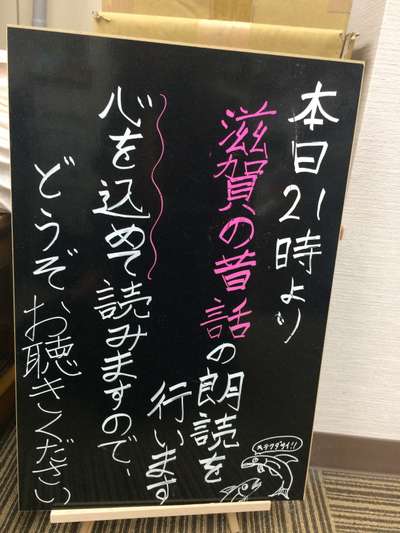 本日21時より
滋賀の昔話の朗読を
行います
心を込めて読みますので、
どうぞお聴きください